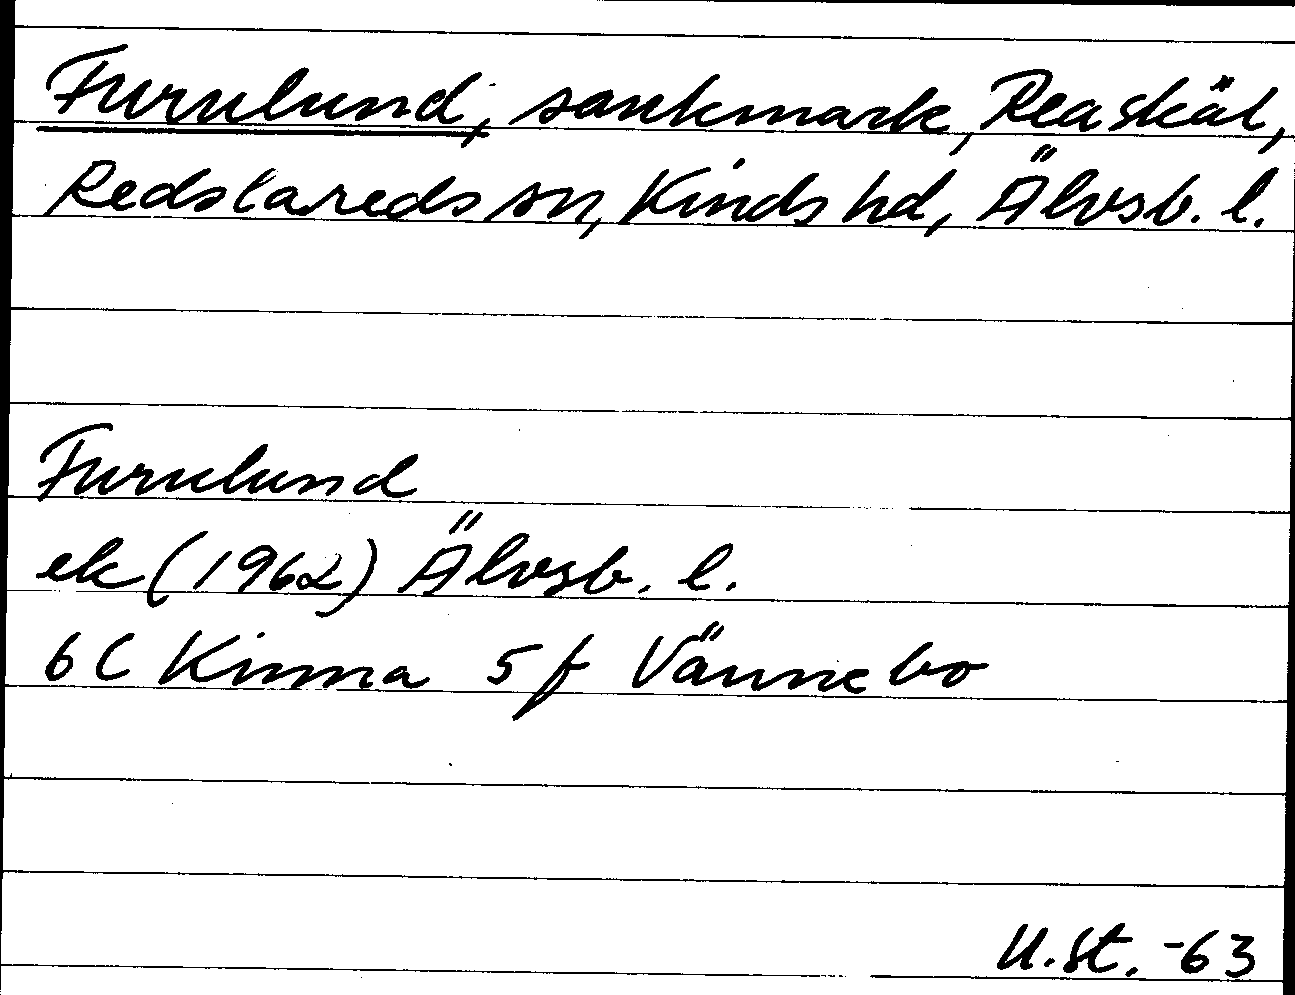 Furulund, sankmark, Reaskäl,
Redslareds sn, Kinds hd, Älvsb. l.
Furulund
ek (1962) Älvsb. l.
6 C Kinna 5 f Vännebo
U.St. -63